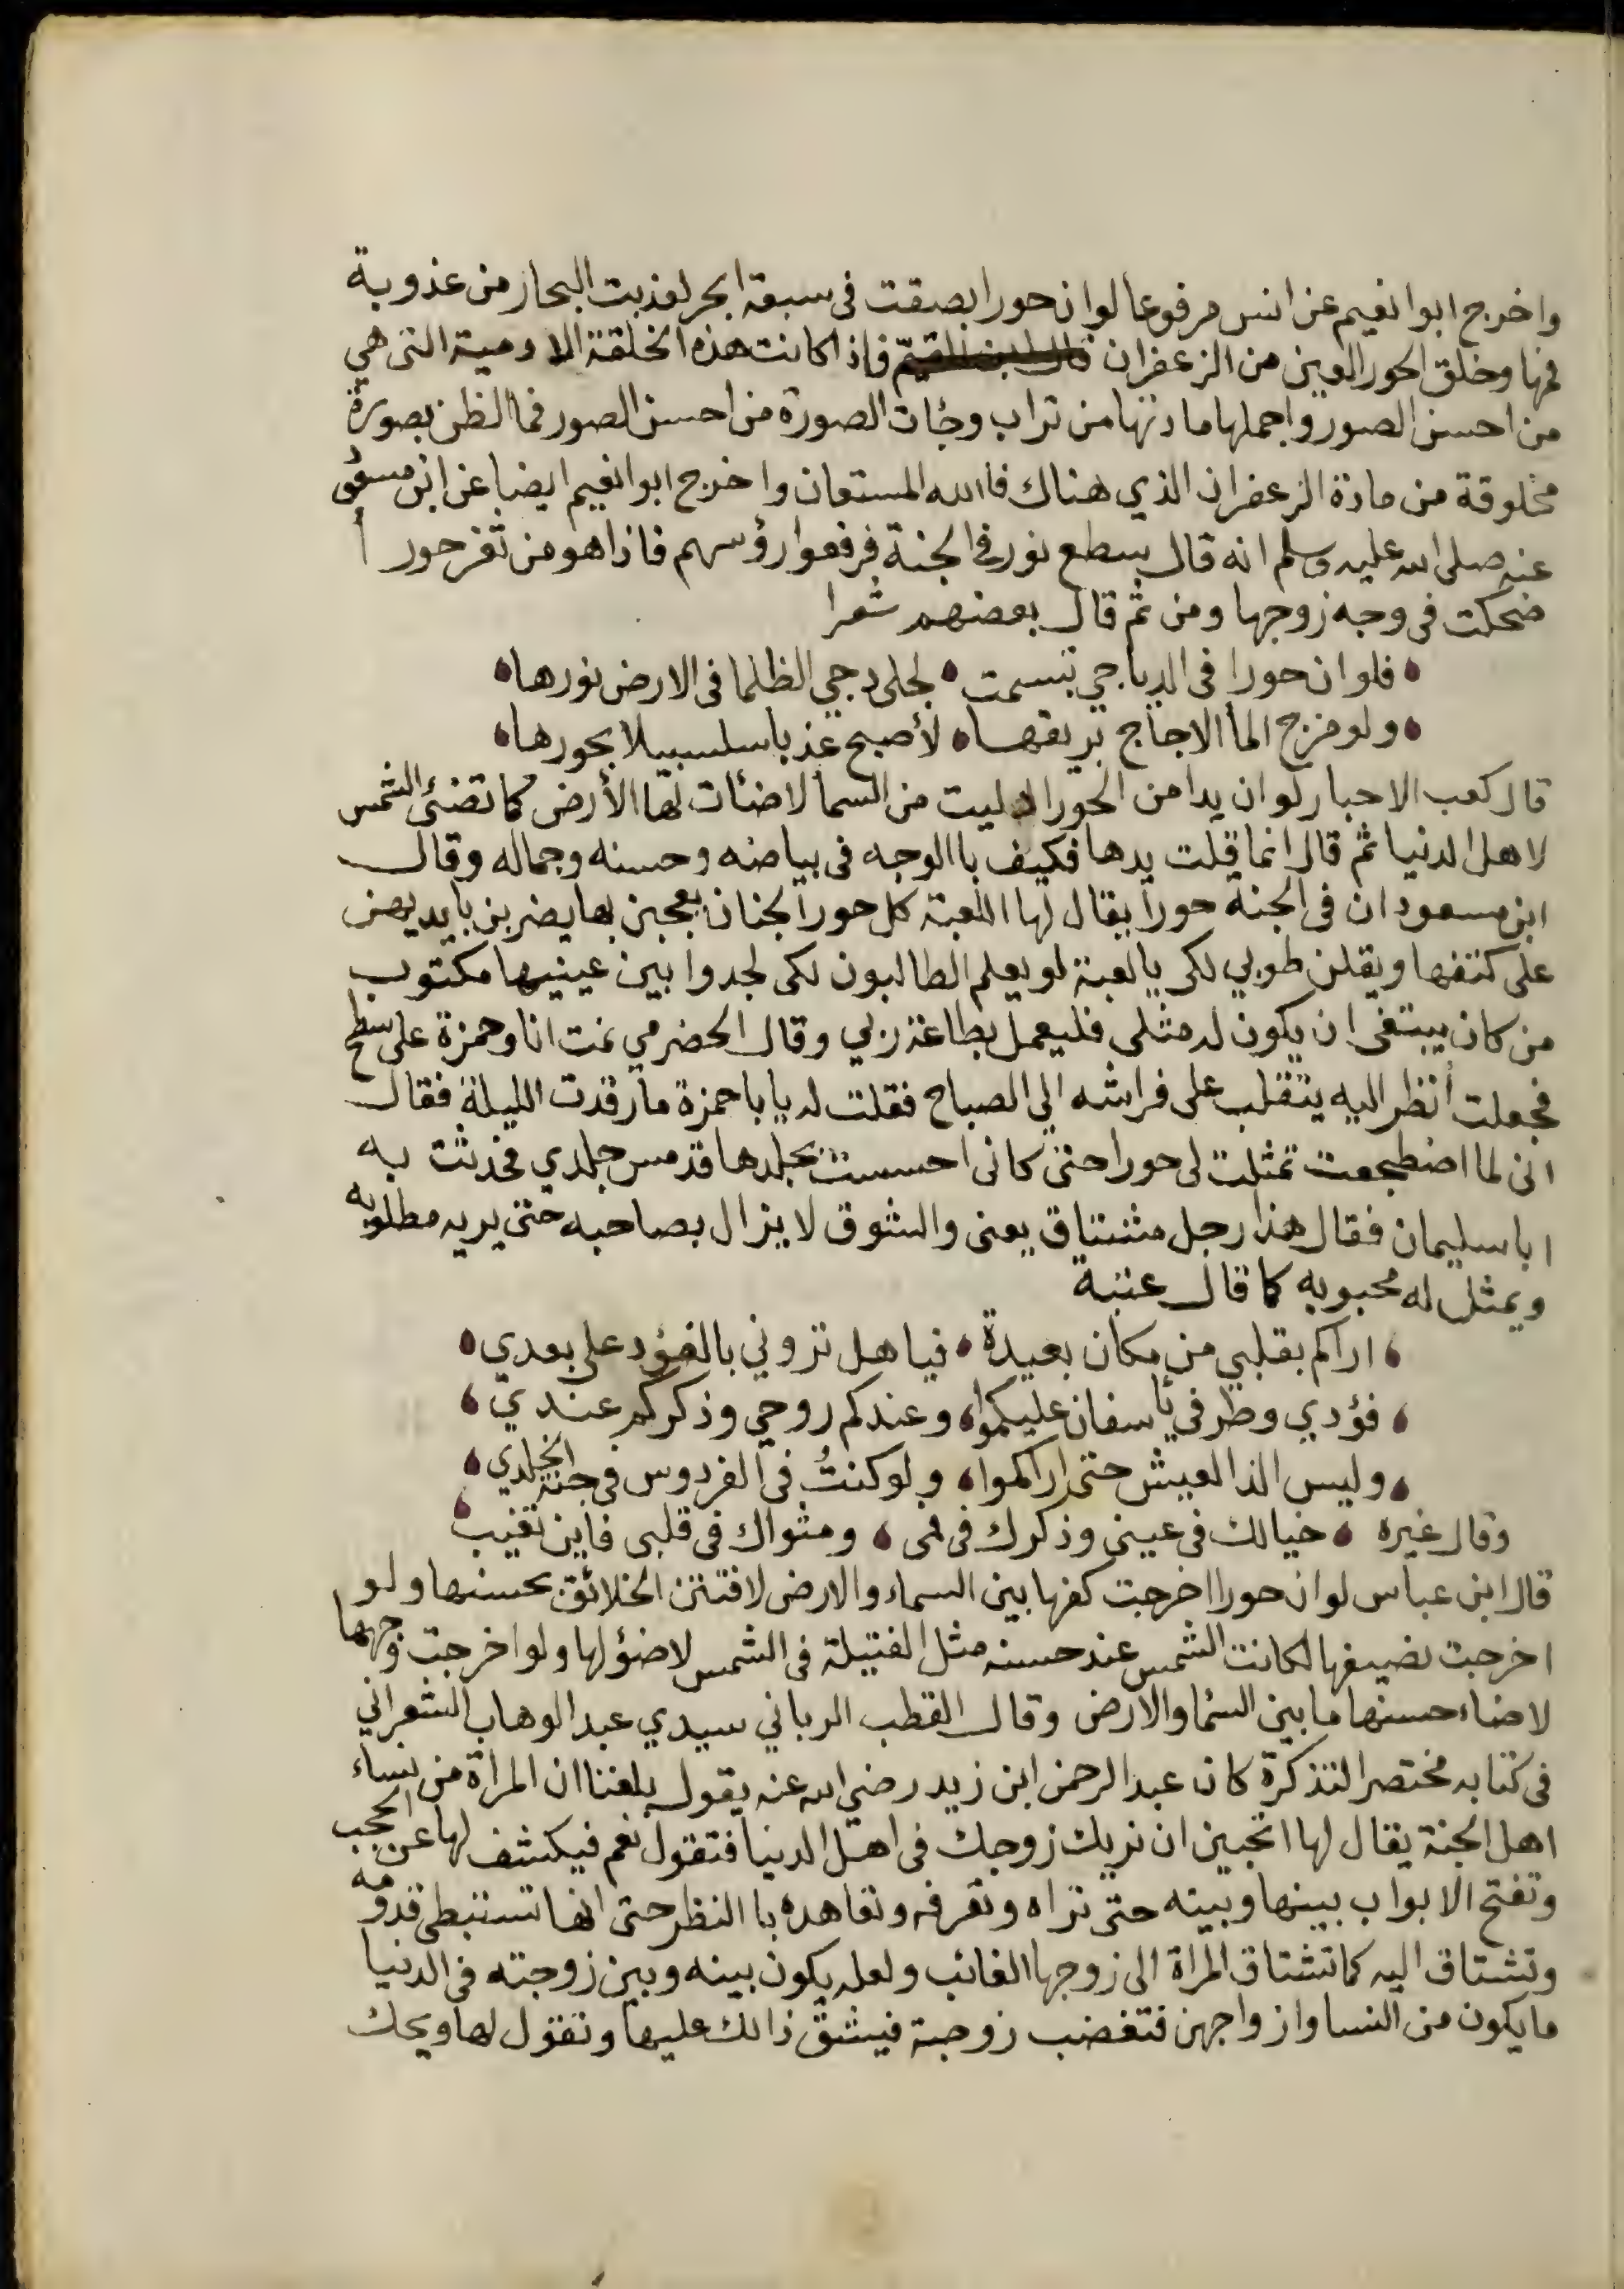 واخرج ابوا نعيم عن انس مرفوعا لو ان حورا بصقت فى سبعة ابحر لعذبت البحار من عذوبة
فمها وخلق الحور العين من الزعفران قال ابن القيم فاذا كانت هذه الخلقة الادمية التى هي
من احسن الصور واجملها مادتها من تراب وجٔات الصورة من احسن الصور فما الظن بصورة
مخلوقة من مادة الزعفران الذي هناك فاالله المستعان واخرج ابوا نعيم ايضا عن ابن مسعو
عنه صلى الله عليه وسلم انه قال يسطع نور فى الجنة فرفعوا رؤسهم فاذا هو من ثغر حورا
ضحكت فى وجه زوجها ومن ثم قال بعضهم شعرا
فلو ان حورا فى الدياجي تبسمت لجلى دجي الظلما فى الارض نورها
ولو مزج المأ الاجاج بريقها لأصبح عذبا سلسبيلا بحورها
قال كعب الاحبار لو ان يدا من الحور ادليت من السما لاضئات لها الأرض كما تضئ الشمس
لاهل الدنيا ثم قال انما قلت يدها فكيف باالوجه فى بياضه وحسنه وجماله وقال
ابن مسعود ان فى الجنة حورا يقال لها اللعبة كل حور الجنان يعجبن بها يضربن بايديهن
على كتفها ويقلن طوبي لكى يالعبة لو يعلم الطالبون لكى لجدوا بين عينيها مكتوب
من كان يبتغى ان يكون له مثلى فليعمل بطاعة ربي وقال الحضرمي نمت انا وحمزة على سطح
فجعلت أنظر اليه يتقلب على فراشه الي الصباح فقلت له يا باحمزة ما رقدت الليلة فقال
انى لما اضطجعت تمثلت لى حورا حتى كانى احسست بجلدها قد مس جلدي فحدثت به
ابا سليمان فقال هذا رجل مشتاق يعنى والشوق لا يزال بصاحبه حتى يريه مطلوبه
ويمثل له محبوبه كما قال عتبة
اراكم بقلبي من مكان بعيدة فيا هل تروني بالفؤد على بعدي
فؤدي وطرفي يأسفان عليكموا وعندكم روحي وذكركم عندي
وليس الذ العيش حتى اراكموا ولو كنتُ فى الفردوس فى جنة الخلدي
وقال غيره خيالك فى عينى وذكرك فى فمى ومثواك فى قلبى فاين تغيب
قال ابن عباس لو ان حورا اخرجت كفها بين السماء والارض لافتتن الخلائق بحسنها ولو
اخرجت نصيفها لكانت الشمس عند حسنه مثل الفتيلة فى الشمس لا ضؤ لها ولو اخرجت وجهها
لاضاء حسنها ما بين السما والارض وقال القطب الرباني سيدي عبد الوهاب الشعراني
فى كتابه مختصر التذكرة كان عبد الرحمن ابن زيد رضي الله عنه يقول بلغنا ان المراة من نساء
اهل الجنة يقال لها اتحبين ان نريك زوجك فى اهل الدنيا فتقول نعم فيكشف لها عن الحجب
وتفتح الابواب بينها وبينه حتى تراه وتعرفه وتعاهده باالنظر حتى انها تستبطى قدومه
وتشتاق اليه كما تشتاق المراة الى زوجها الغائب ولعله يكون بينه وبين زوجته فى الدنيا
ما يكون من النسا وازواجهن فتغضب زوجة فيشق ذالك عليها وتقول لها ويحك